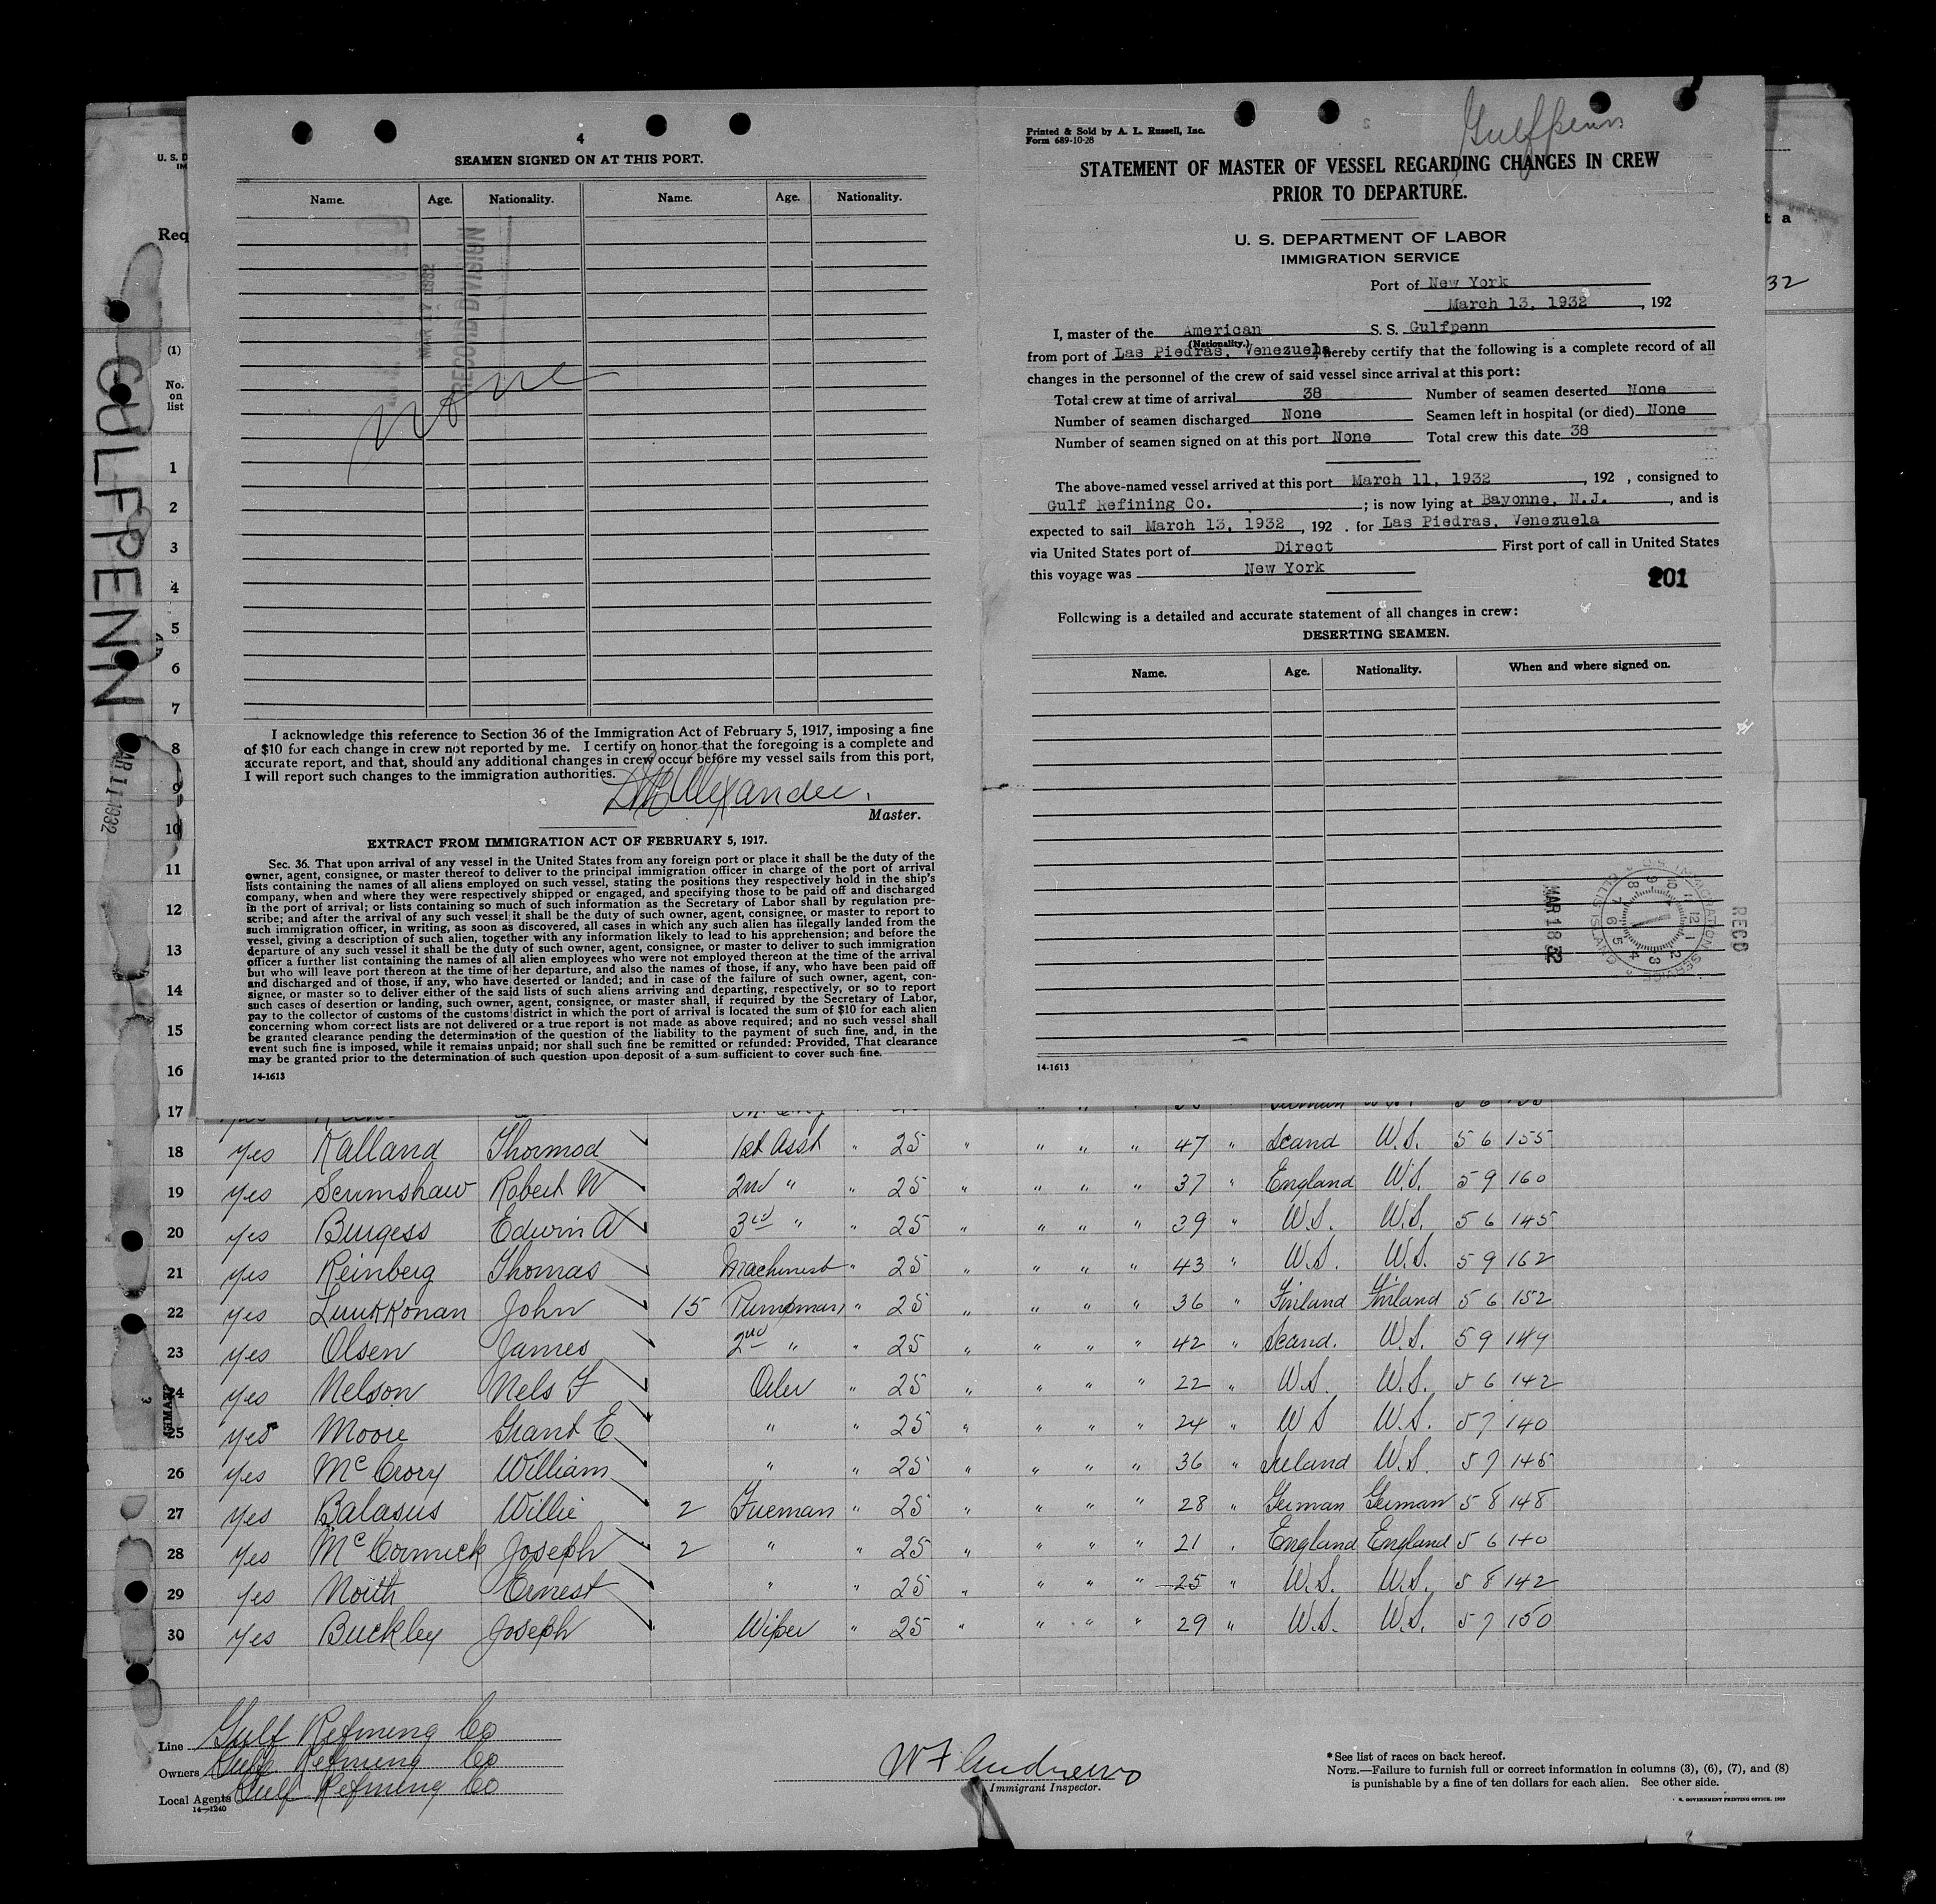 4
SEAMEN SIGNED ON AT THIS PORT.
Name. Age. Nationality. Name. Age. Nationality.
RECORD DIVISION
none
I acknowledge this reference to Section 36 of the Immigration Act of February 5, 1917, imposing a fine
of $10 for each change in crew not reported by me. I certify on honor that the foregoing is a complete and
accurate report, and that, should any additional changes in crew occur before my vessel sails from this port,
I will report such changes to the immigration authorities.
Alexander.
Master.
EXTRACT FROM IMMIGRATION ACT OF FEBRUARY 5, 1917.
Sec. 36. That upon arrival of any vessel in the United States from any foreign port or place it shall be the duty of the
owner, agent, consignee, or master thereof to deliver to the principal immigration officer in charge of the port of arrival
lists containing the names of all aliens employed on such vessel, stating the positions they respectively hold in the ship's
company, when and where they were respectively shipped or engaged, and specifying those to be paid off and discharged
in the port of arrival; or lists containing so much of such information as the Secretary of Labor shall by regulation pre-
scribe; and after the arrival of any such vessel it shall be the duty of such owner, agent, consignee, or master to report to
such immigration officer, in writing, as soon as discovered, all cases in which any such alien has illegally landed from the
vessel, giving a description of such alien, together with any information likely to lead to his apprehension; and before the
departure of any such vessel it shall be the duty of such owner, agent, consignee, or master to deliver to such immigration
officer a further list containing the names of all alien employees who were not employed thereon at the time of the arrival
but who will leave port thereon at the time of her departure, and also the names of those, if any, who have been paid off
and discharged and of those, if any, who have deserted or landed; and in case of the failure of such owner, agent, con-
signee, or master so to deliver either of the said lists of such aliens arriving and departing, respectively, or so to report
such cases of desertion or landing, such owner, agent, consignee, or master shall, if required by the Secretary of Labor,
pay to the collector of customs of the customs district in which the port of arrival is located the sum of $10 for each alien
concerning whom correct lists are not delivered or a true report is not made as above required; and no such vessel shall
be granted clearance pending the determination of the question of the liability to the payment of such fine, and, in the
event such fine is imposed, while it remains unpaid; nor shall such fine be remitted or refunded: Provided, That clearance
may be granted prior to the determination of such question upon deposit of a sum sufficient to cover such fine.
14-1613
Printed & Sold by A. L. Russell, Inc.
Form 689-10-28
Gulfpenn
STATEMENT OF MASTER OF VESSEL REGARDING CHANGES IN CREW
PRIOR TO DEPARTURE.
U. S. DEPARTMENT OF LABOR
IMMIGRATION SERVICE
Port of New York
March 13, 1932, 192
I, master of the American S. S. Gulfpenn
(Nationality.)
from port of Las Piedras, Venezuela, hereby certify that the following is a complete record of all
changes in the personnel of the crew of said vessel since arrival at this port:
Total crew at time of arrival 38 Number of seamen deserted None
Number of seamen discharged None Seamen left in hospital (or died) None
Number of seamen signed on at this port None Total crew this date 38
The above-named vessel arrived at this port March 11, 1932, 192 , consigned to
Gulf Refining Co. ; is now lying at Bayonne, N.J. , and is
expected to sail March 13, 1932, 192 . for Las Piedras, Venezuela
via United States port of Direct First port of call in United States
this voyage was New York
201
Following is a detailed and accurate statement of all changes in crew:
DESERTING SEAMEN.
Name. Age. Nationality. When and where signed on.
U.S. IMMIGRATION SERVICE ELLIS ISLAND
MAR 18 32
REC'D
14-1613
GULFPENN
MAR 11 1932
U. S. D
IM
Req
t a
32
(1)
No.
on
list
1
2
3
4
5
6
7
8
9
10
11
12
13
14
15
16
17
18 Yes Kalland Thormod 1st Asst " 25 " " " " 47 " Scand U.S. 5 6 155
19 Yes Scrimshaw Robert W 2nd " " 25 " " " " 37 " England U.S. 5 9 160
20 Yes Burgess Edwin A 3rd " " 25 " " " " 39 " U.S. U.S. 5 6 145
21 Yes Reinberg Thomas Machinist " 25 " " " " 43 " U.S. U.S. 5 9 162
22 Yes Luukkonan John 15 Pumpman " 25 " " " " 36 " Finland Finland 5 6 152
23 Yes Olsen James 2nd " " 25 " " " " 42 " Scand. U.S. 5 9 149
24 Yes Nelson Nels F Oiler " 25 " " " " 22 " U.S. U.S. 5 6 142
25 Yes Moore Grant E " " 25 " " " " 24 " U S U.S. 5 7 140
26 Yes McCrory William " " 25 " " " " 36 " Ireland U.S. 5 7 145
27 Yes Balasus Willie 2 Fireman " 25 " " " " 28 " German German 5 8 148
28 Yes McCormick Joseph 2 " " 25 " " " " 21 " England England 5 6 140
29 Yes North Ernest " " 25 " " " " 25 " U.S. U.S. 5 8 142
30 Yes Buckley Joseph Wiper " 25 " " " " 29 " U.S. U.S. 5 7 150
Line Gulf Refining Co
Owners Gulf Refining Co
Local Agents Gulf Refining Co
14-1240
W F Andrews
Immigrant Inspector.
* See list of races on back hereof.
NOTE.—Failure to furnish full or correct information in columns (3), (6), (7), and (8)
is punishable by a fine of ten dollars for each alien. See other side.